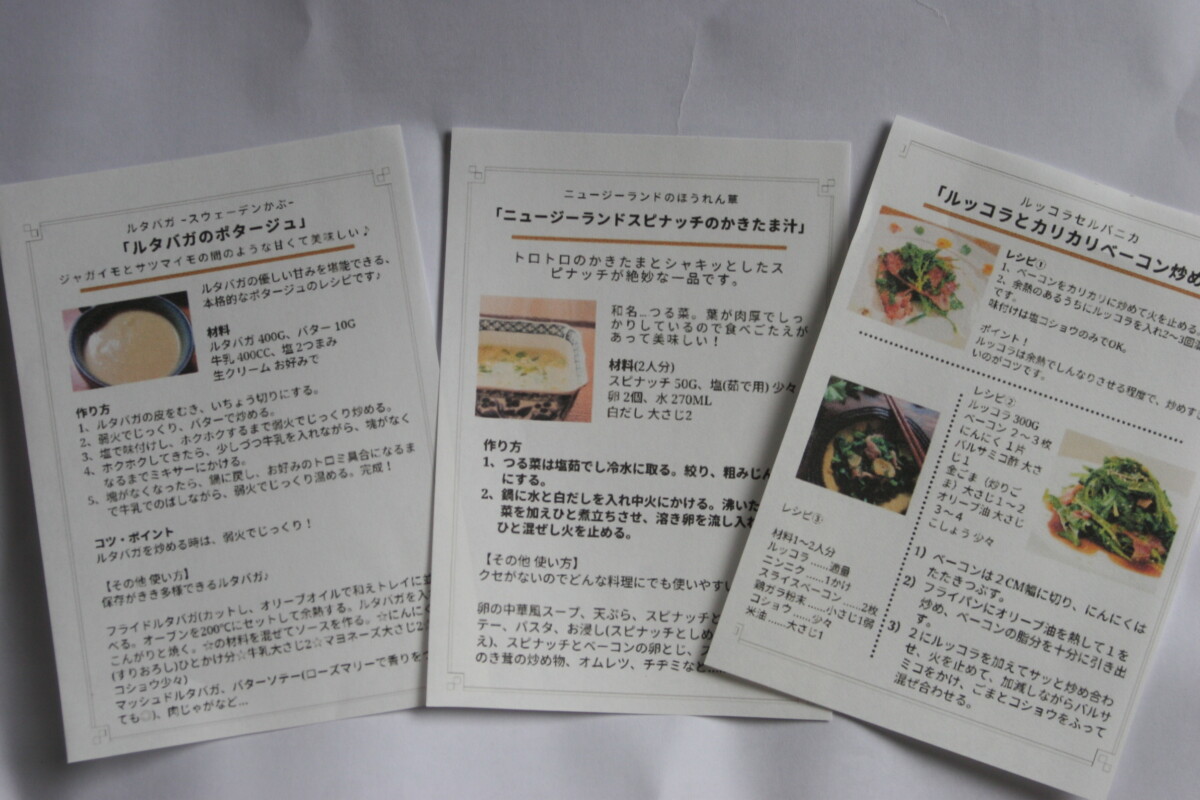 ルタバガ -スウェーデンかぶ-
「ルタバガのポタージュ」
ジャガイモとサツマイモの間のような甘くて美味しい♪
ルタバガの優しい甘みを堪能できる、
本格的なポタージュのレシピです♪
材料
ルタバガ 400G、バター 10G
牛乳 400CC、塩 2つまみ
生クリーム お好みで
作り方
1、ルタバガの皮をむき、いちょう切りにする。
2、弱火でじっくり、バターで炒める。
3、塩で味付けし、ホクホクするまで弱火でじっくり炒める。
4、ホクホクしてきたら、少しづつ牛乳を入れながら、塊がなく
なるまでミキサーにかける。
5、塊がなくなったら、鍋に戻し、お好みのトロミ具合になるま
で牛乳でのばしながら、弱火でじっくり温める。完成！
コツ・ポイント
ルタバガを炒める時は、弱火でじっくり！
【その他 使い方】
保存がきき多様できるルタバガ♪
フライドルタバガ(カットし、オリーブオイルで和えトレイに並
べる。オーブンを200℃にセットして余熱する。ルタバガを入
こんがりと焼く。☆の材料を混ぜてソースを作る。☆にんにく
(すりおろし)ひとかけ分☆牛乳大さじ2☆マヨネーズ大さじ2
コショウ少々)
マッシュドルタバガ、バターソテー(ローズマリーで香りを
ても◎)、肉じゃがなど...
ニュージーランドのほうれん草
「ニュージーランドスピナッチのかきたま汁」
トロトロのかきたまとシャキッとしたス
ピナッチが絶妙な一品です。
和名…つる菜。葉が肉厚でしっ
かりしているので食べごたえが
あって美味しい！
材料(2人分)
スピナッチ 50G、塩(茹で用) 少々
卵 2個、水 270ML
白だし 大さじ2
作り方
1、つる菜は塩茹でし冷水に取る。絞り、粗みじん
にする。
2、鍋に水と白だしを入れ中火にかける。沸いた
菜を加えひと煮立ちさせ、溶き卵を流し入れ
ひと混ぜし火を止める。
【その他 使い方】
クセがないのでどんな料理にでも使いやすい
卵の中華風スープ、天ぷら、スピナッチと
テー、パスタ、お浸し(スピナッチとしめ
え)、スピナッチとベーコンの卵とじ、ス
のき茸の炒め物、オムレツ、チヂミなど
ルッコラセルバニカ
「ルッコラとカリカリベーコン炒め
レシピ①
1、ベーコンをカリカリに炒めて火を止める。
2、余熱のあるうちにルッコラを入れ2〜3回
です。
味付けは塩コショウのみでOK。
ポイント！
ルッコラは余熱でしんなりさせる程度で、炒めす
いのがコツです。
レシピ②
ルッコラ 300G
ベーコン 2〜3枚
にんにく 1片
バルサミコ酢 大さ
じ1
金ごま（炒りご
ま）大さじ1〜2
オリーブ油 大さじ
3〜4
こしょう 少々
1）ベーコンは2CM幅に切り、にんにくは
たたきつぶす。
2）フライパンにオリーブ油を熱して1を
炒め、ベーコンの脂分を十分に引き出
す。
3）2にルッコラを加えてサッと炒め合わ
せ、火を止めて、加減しながらバルサ
ミコをかけ、ごまとコショウをふって
混ぜ合わせる。
レシピ③
材料1〜2人分
ルッコラ ……適量
ニンニク ……1かけ
スライスベーコン ……2枚
鶏ガラ粉末 ……小さじ1弱
コショウ ……少々
米油 ……大さじ1